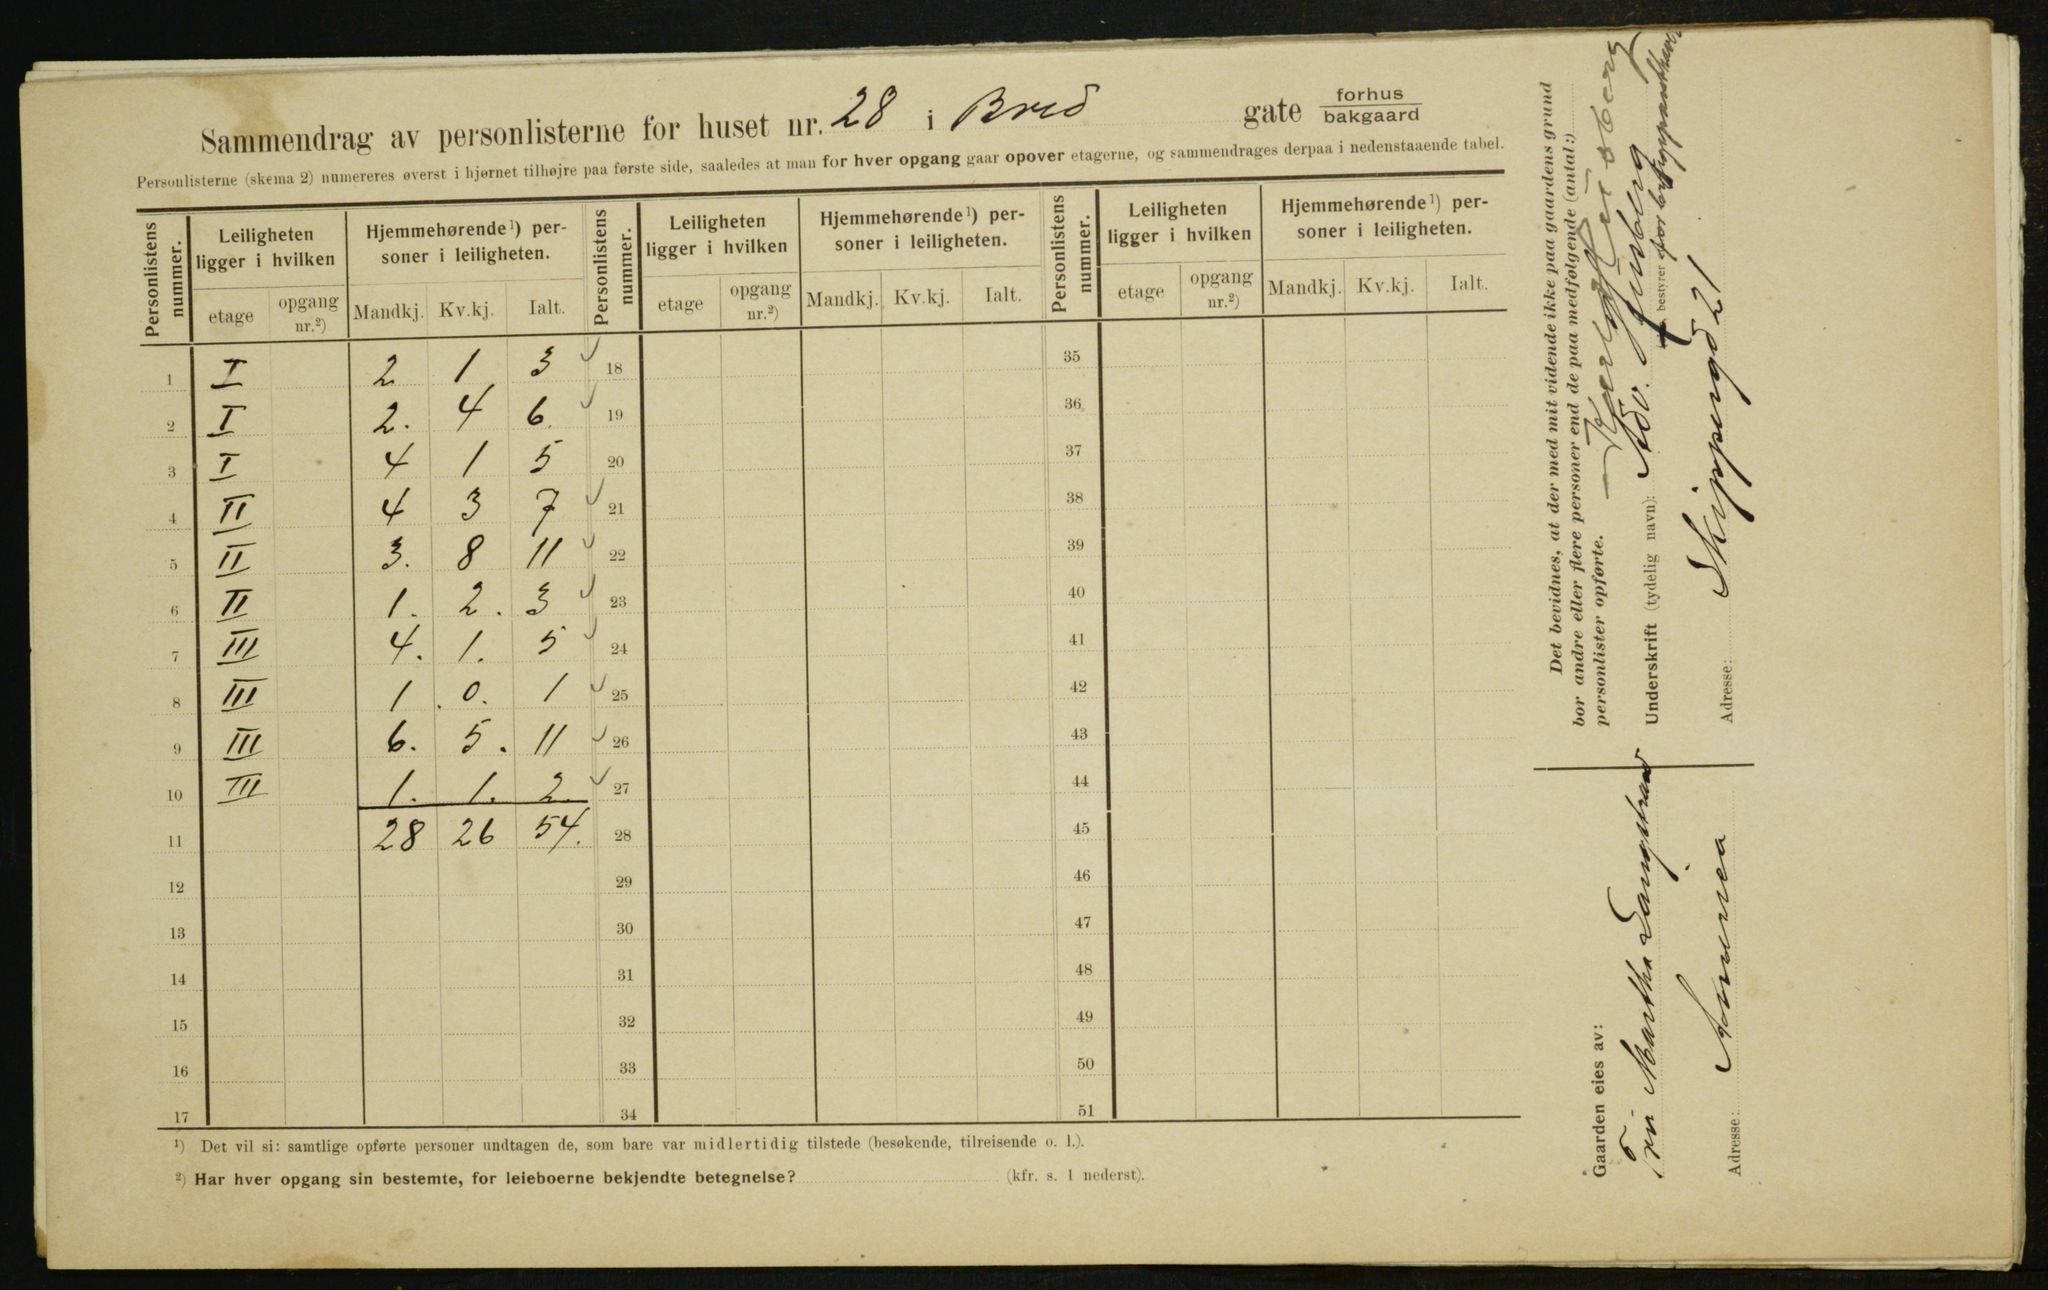 Sammendrag av personlisterne for huset nr. 28 i Bred gate forhus/bakgaard
Personlisterne (skema 2) numereres øverst i hjørnet tilhøjre paa første side, saaledes at man for hver opgang gaar opover etagerne, og sammendrages derpaa i nedenstaaende tabel.
Personlistens nummer. Leiligheten ligger i hvilken Hjemmehørende¹) personer i leiligheten. Personlistens nummer. Leiligheten ligger i hvilken Hjemmehørende¹) personer i leiligheten. Personlistens nummer. Leiligheten ligger i hvilken Hjemmehørende¹) personer i leiligheten.
etage opgang nr.²) Mandkj. Kv.kj. Ialt. etage opgang nr.²) Mandkj. Kv.kj. Ialt. etage opgang nr.²) Mandkj. Kv.kj. Ialt.
1 I 2 1 3 ✓ 18 35
2 I 2. 4 6. ✓ 19 36
3 I 4 1 5 20 37
4 II 4 3 7 ✓ 21 38
5 II 3. 8 11 ✓ 22 39
6 II 1. 2. 3 ✓ 23 40
7 III 4. 1. 5 ✓ 24 41
8 III 1. 0. 1 ✓ 25 42
9 III 6. 5. 11 ✓ 26 43
10 III 1. 1. 2. ✓ 27 44
11 28 26 54. 28 45
12 29 46
13 30 47
14 31 48
15 32 49
16 33 50
17 34 51
¹) Det vil si: samtlige opførte personer undtagen de, som bare var midlertidig tilstede (besøkende, tilreisende o. l.).
²) Har hver opgang sin bestemte, for leieboerne bekjendte betegnelse? (kfr. s. 1 nederst).
Det bevidnes, at der med mit vidende ikke paa gaardens grund
bor andre eller flere personer end de paa medfølgende (antal:)
personlister opførte.
Underskrift (tydelig navn): Adv.
bestyrer
Adresse: Skippergd 21
Gaarden eies av:
Martha Langstrand
Adresse: America